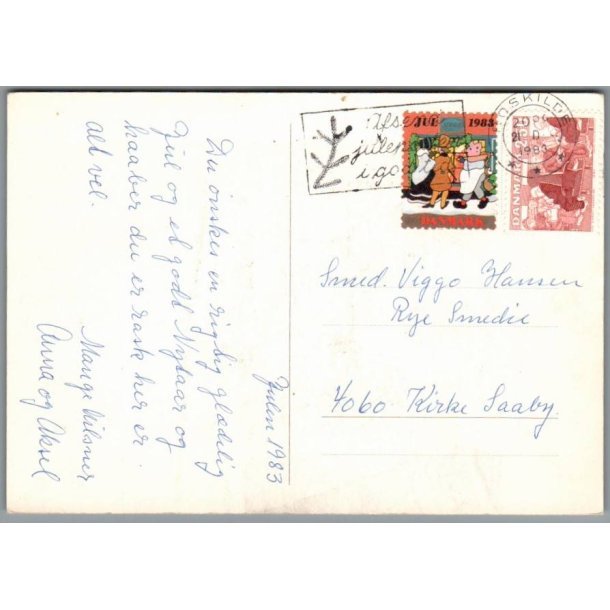 Julen 1983
Du önskes en rigtig glædelig
Jul og et godt Nytaar og
haaber du er rask her er
alt vel.
Mange Hilsner
Anna og Aksel
Afse
julen
i go
JUL 1983
DANMARK
ROSKILDE
21 D
1983
DANMARK
Smed. Viggo Hansen
Rye Smedie
4060 Kirke Saaby.